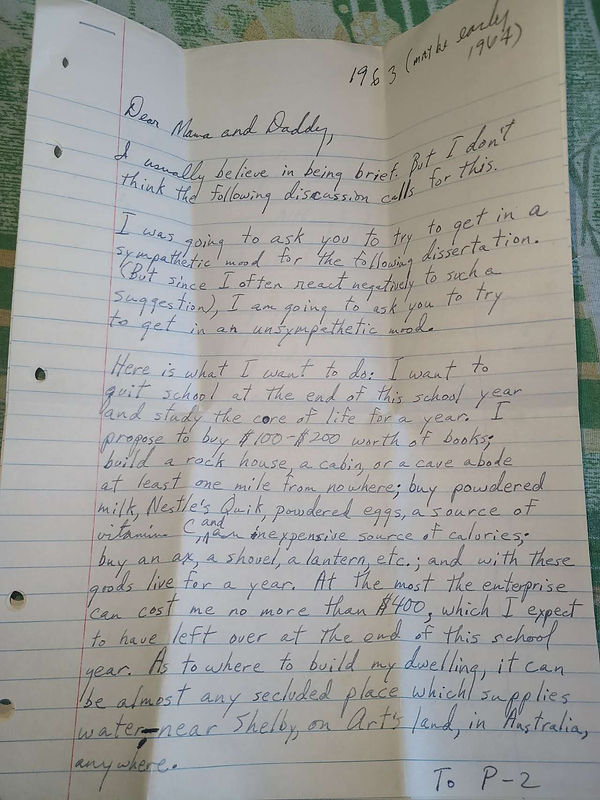 1963 (maybe early
1964)
Dear Mama and Daddy,
I usually believe in being brief. But I don't
think the following discussion calls for this.
I was going to ask you to try to get in a
sympathetic mood for the following dissertation.
(But since I often react negatively to such a
suggestion), I am going to ask you to try
to get in an unsympathetic mood.
Here is what I want to do: I want to
quit school at the end of this school year
and study the core of life for a year. I
propose to buy $100-$200 worth of books;
build a rock house, a cabin, or a cave abode
at least one mile from nowhere; buy powdered
milk, Nestle's Quik, powdered eggs, a source of
vitamin C and an inexpensive source of calories;
buy an ax, a shovel, a lantern, etc.; and with these
goods live for a year. At the most the enterprise
can cost me no more than $400, which I expect
to have left over at the end of this school
year. As to where to build my dwelling, it can
be almost any secluded place which supplies
water-near Shelby, on Art's land, in Australia,
anywhere.
To P-2